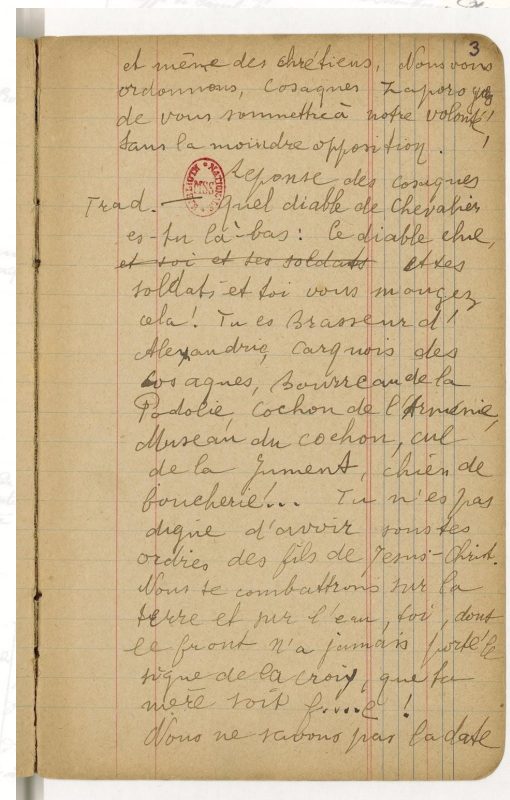 3
et même des chrétiens, Nous vous
ordonnons, Cosaques Zaporogues
de vous sommettre à notre volonté!
sans la moindre opposition.
Reponse des cosaques
Trad. — Quel diable de Chevalier
es-tu là-bas: le diable chie,
et toi et tes soldats et tes
soldats et toi vous mangez
cela! Tu es Brasseur d'
Alexandrie, Carquois des
Cosaques, Bourreau de la
Podolie, Cochon de l'Arménie,
Museau du cochon, cul
de la Jument, chien de
boucherie!... Tu n'es pas
digne d'avoir sous tes
ordres des fils de Jesus-Christ.
Nous te combattrons sur la
terre et sur l'eau, toi, dont
le front n'a jamais porté le
signe de la croix, que ta
mère soit f....e!
Nous ne savons pas la date